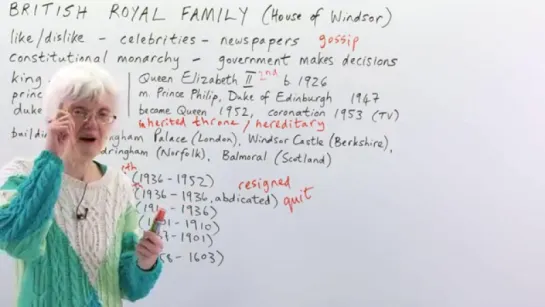 BRITISH ROYAL FAMILY (House of Windsor)
like/dislike – celebrities – newspapers gossip
constitutional monarchy – government makes decisions
king Queen Elizabeth II 2nd b. 1926
princ m. Prince Philip, Duke of Edinburgh 1947
duke became Queen 1952, coronation 1953 (TV)
inherited throne / hereditary
buildin ngham Palace (London), Windsor Castle (Berkshire),
dringham (Norfolk), Balmoral (Scotland)
th (1936 – 1952) resigned
(1936 – 1936, abdicated) quit
– 1936)
– 1910)
– 1901)
– 1603)